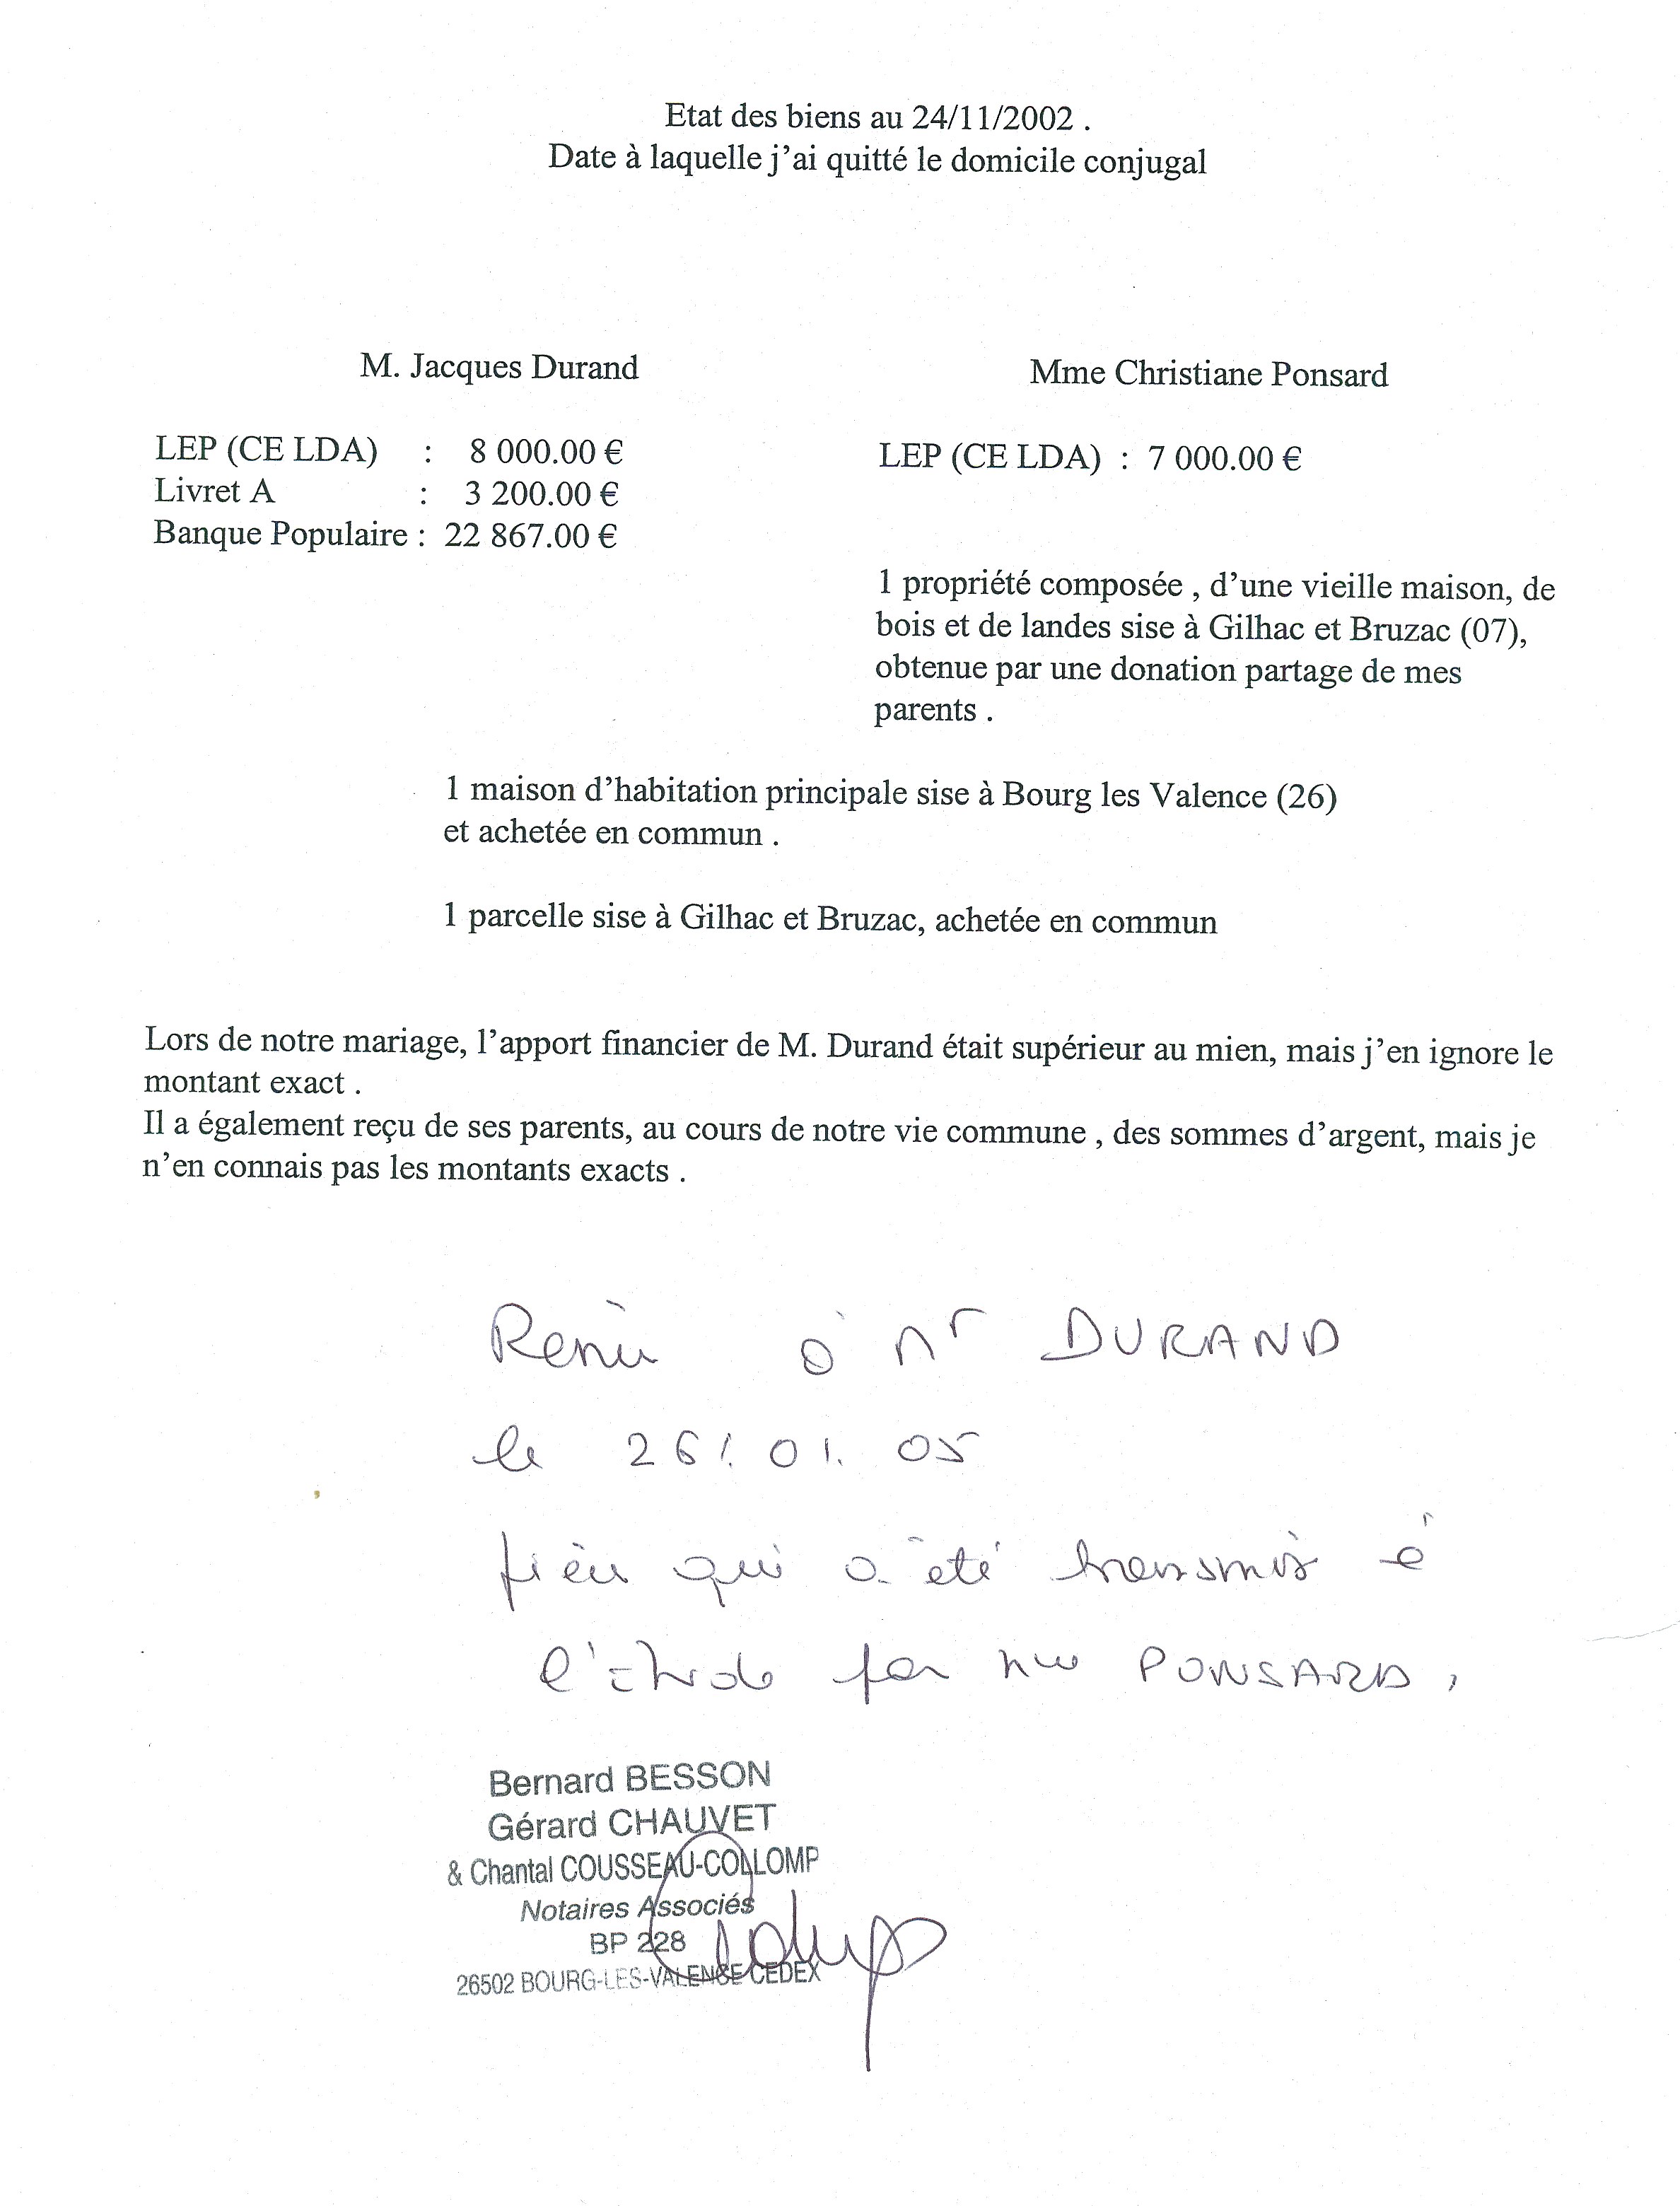 Etat des biens au 24/11/2002 .
Date à laquelle j'ai quitté le domicile conjugal
M. Jacques Durand
LEP (CE LDA) : 8 000.00 €
Livret A : 3 200.00 €
Banque Populaire : 22 867.00 €
Mme Christiane Ponsard
LEP (CE LDA) : 7 000.00 €
1 propriété composée , d'une vieille maison, de
bois et de landes sise à Gilhac et Bruzac (07),
obtenue par une donation partage de mes
parents .
1 maison d'habitation principale sise à Bourg les Valence (26)
et achetée en commun .
1 parcelle sise à Gilhac et Bruzac, achetée en commun
Lors de notre mariage, l'apport financier de M. Durand était supérieur au mien, mais j'en ignore le
montant exact .
Il a également reçu de ses parents, au cours de notre vie commune , des sommes d'argent, mais je
n'en connais pas les montants exacts .
Remis à Mr DURAND
le 26/. 01. 05
pièce qui a été transmis à
l'étude par Mme PONSARD,
Bernard BESSON
Gérard CHAUVET
& Chantal COUSSEAU-COLLOMP
Notaires Associés
BP 228
26502 BOURG-LES-VALENCE CEDEX